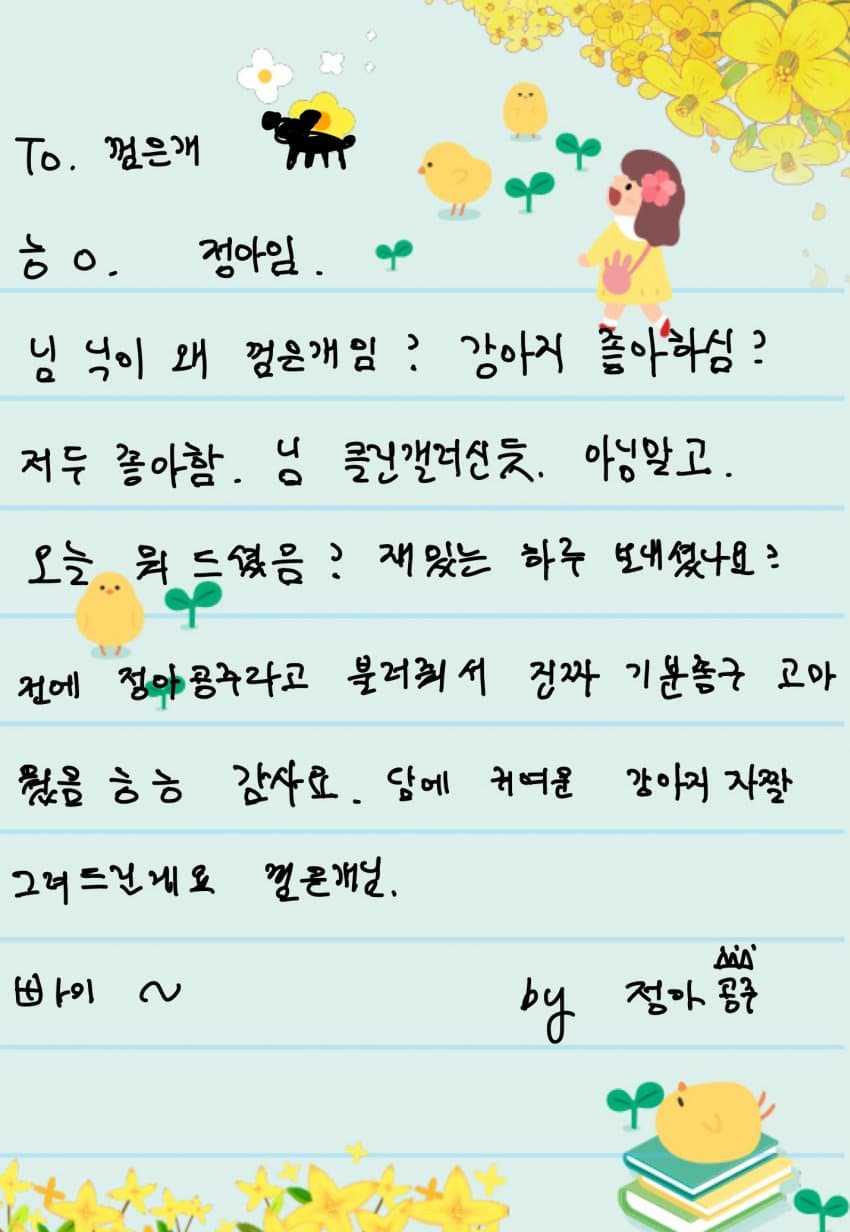 To. 껌은개
능 ㅇ. 정아임.
님 닉이 왜 껌은개임? 강아지 좋아하심?
저두 좋아함. 님 클린갤러신듯. 아님말고.
오늘 뭐 드셨음? 재밌는 하루 보내셨나요?
전에 정아공주라고 불러줘서 진짜 기분좋구 고마
웠음 ㅎㅎ 감사요. 담에 귀여운 강아지 자짤
그려드린게요 껌은개님.
빠이 ~ by 정아공주